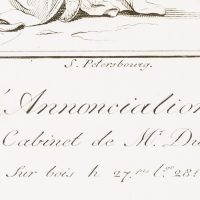 S. Petersbourg.
'Annonciation
Cabinet de Mr. Du
Sur bois h. 27.